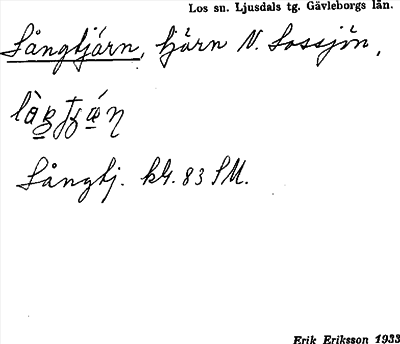 Los sn. Ljusdals tg. Gävleborgs län.
Långtjärn, tjärn N. Lossjön,
Långtj. kbl. 83 SM.
Erik Eriksson 1933